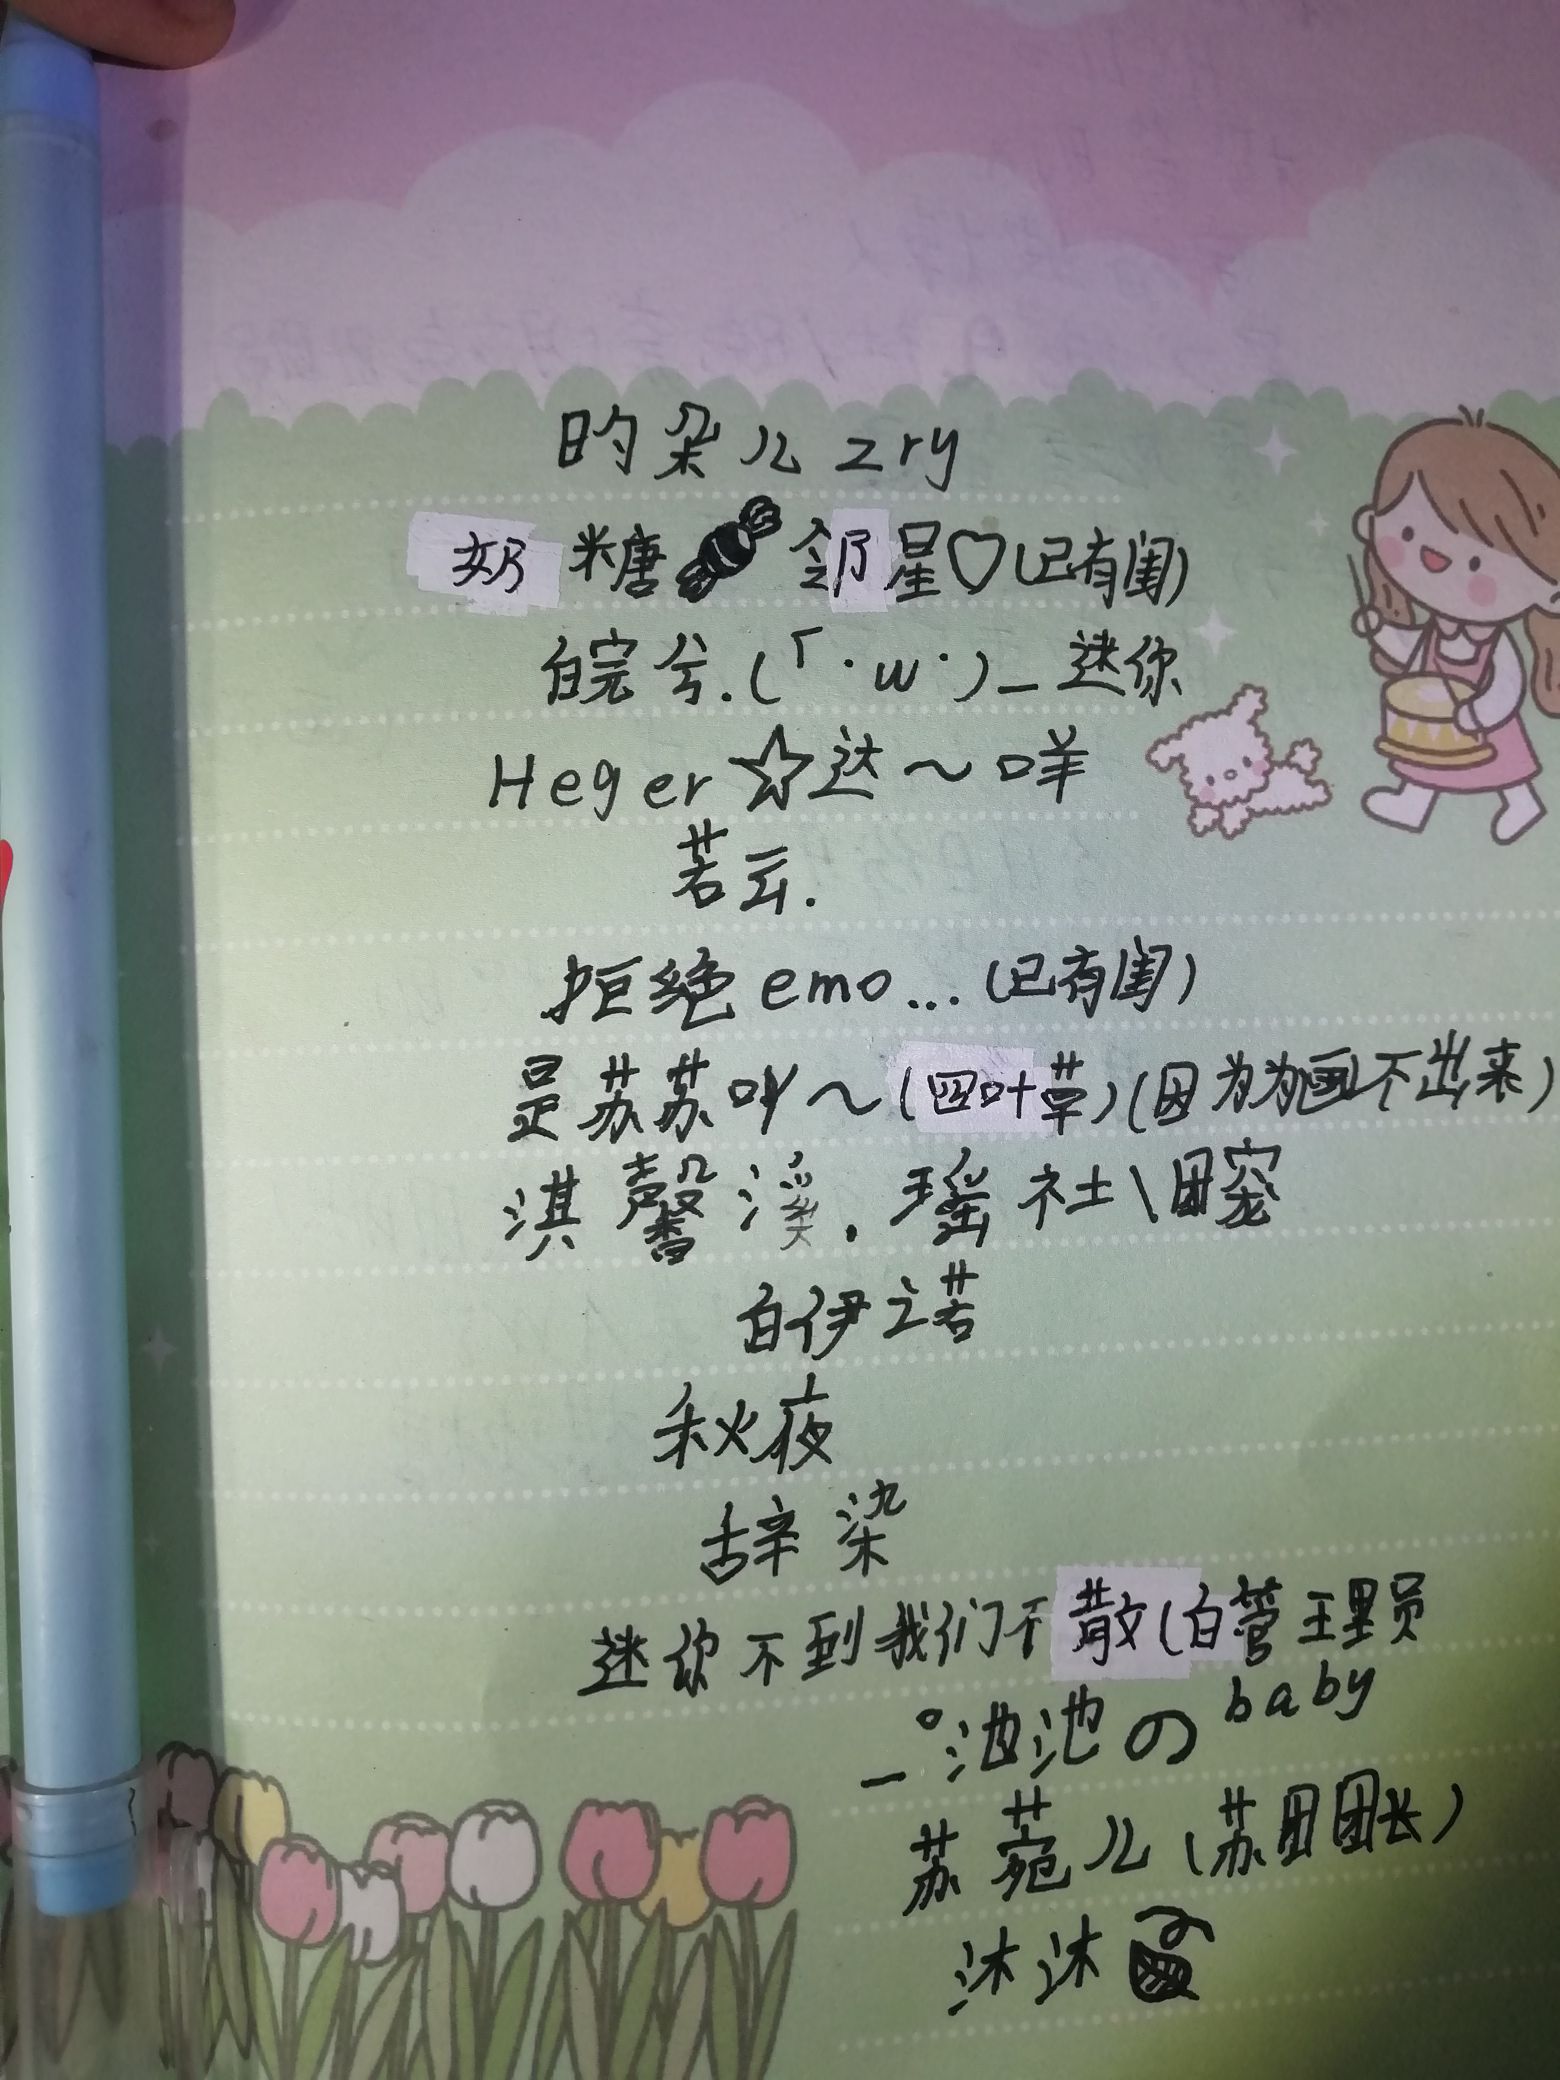 昀朵儿zry
奶糖 邻星♡(已有闺)
皖兮.(「·w·)_迷你
Heger☆达～咩
若云.
拒绝emo...(已有闺)
是苏苏吖～(四叶草)(因为为画不出来)
淇馨溪.瑶社\团宠
白伊之若
秋夜
辞染
迷你不到我们不散(白管理员
_°池池の baby
苏菀儿(苏团团长)
沐沐